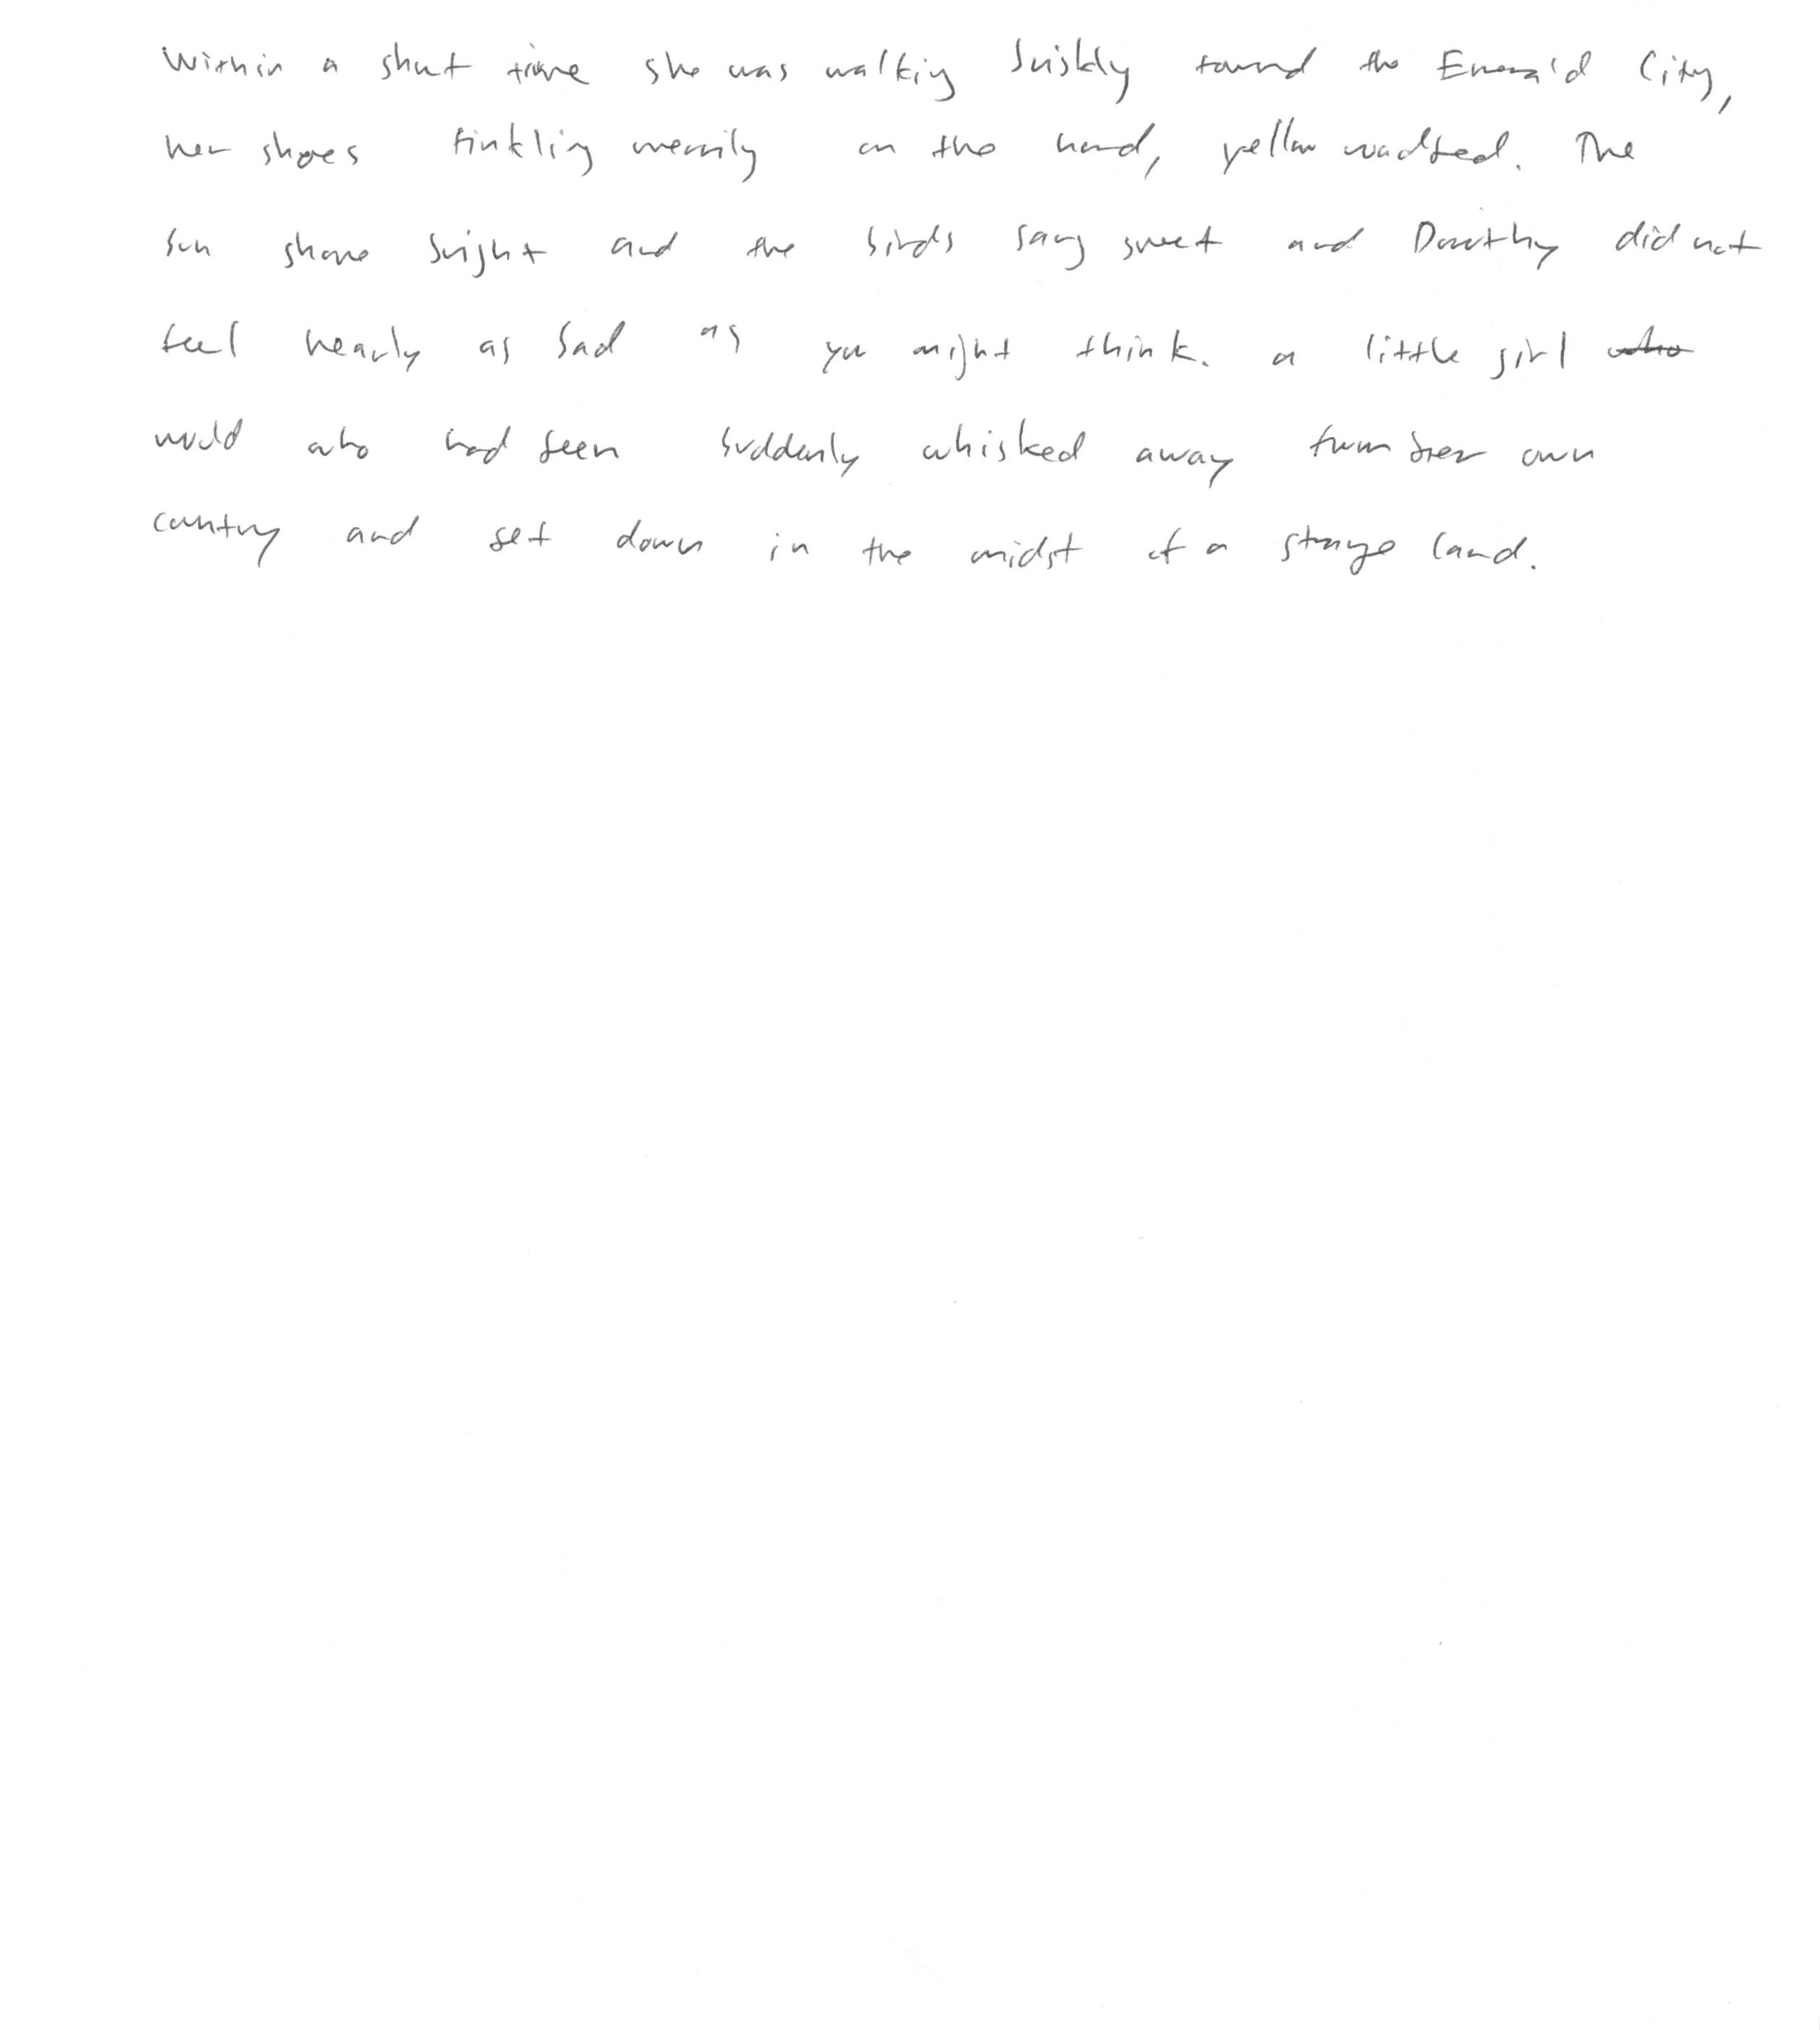 Within a short time she was walking briskly toward the Emerald City,
her shoes tinkling merrily on the hard, yellow roadbed. The
sun shone bright and the birds sang sweet and Dorothy did not
feel nearly as bad as you might think. a little girl who
would who had been suddenly whisked away from her own
country and set down in the midst of a strange land.